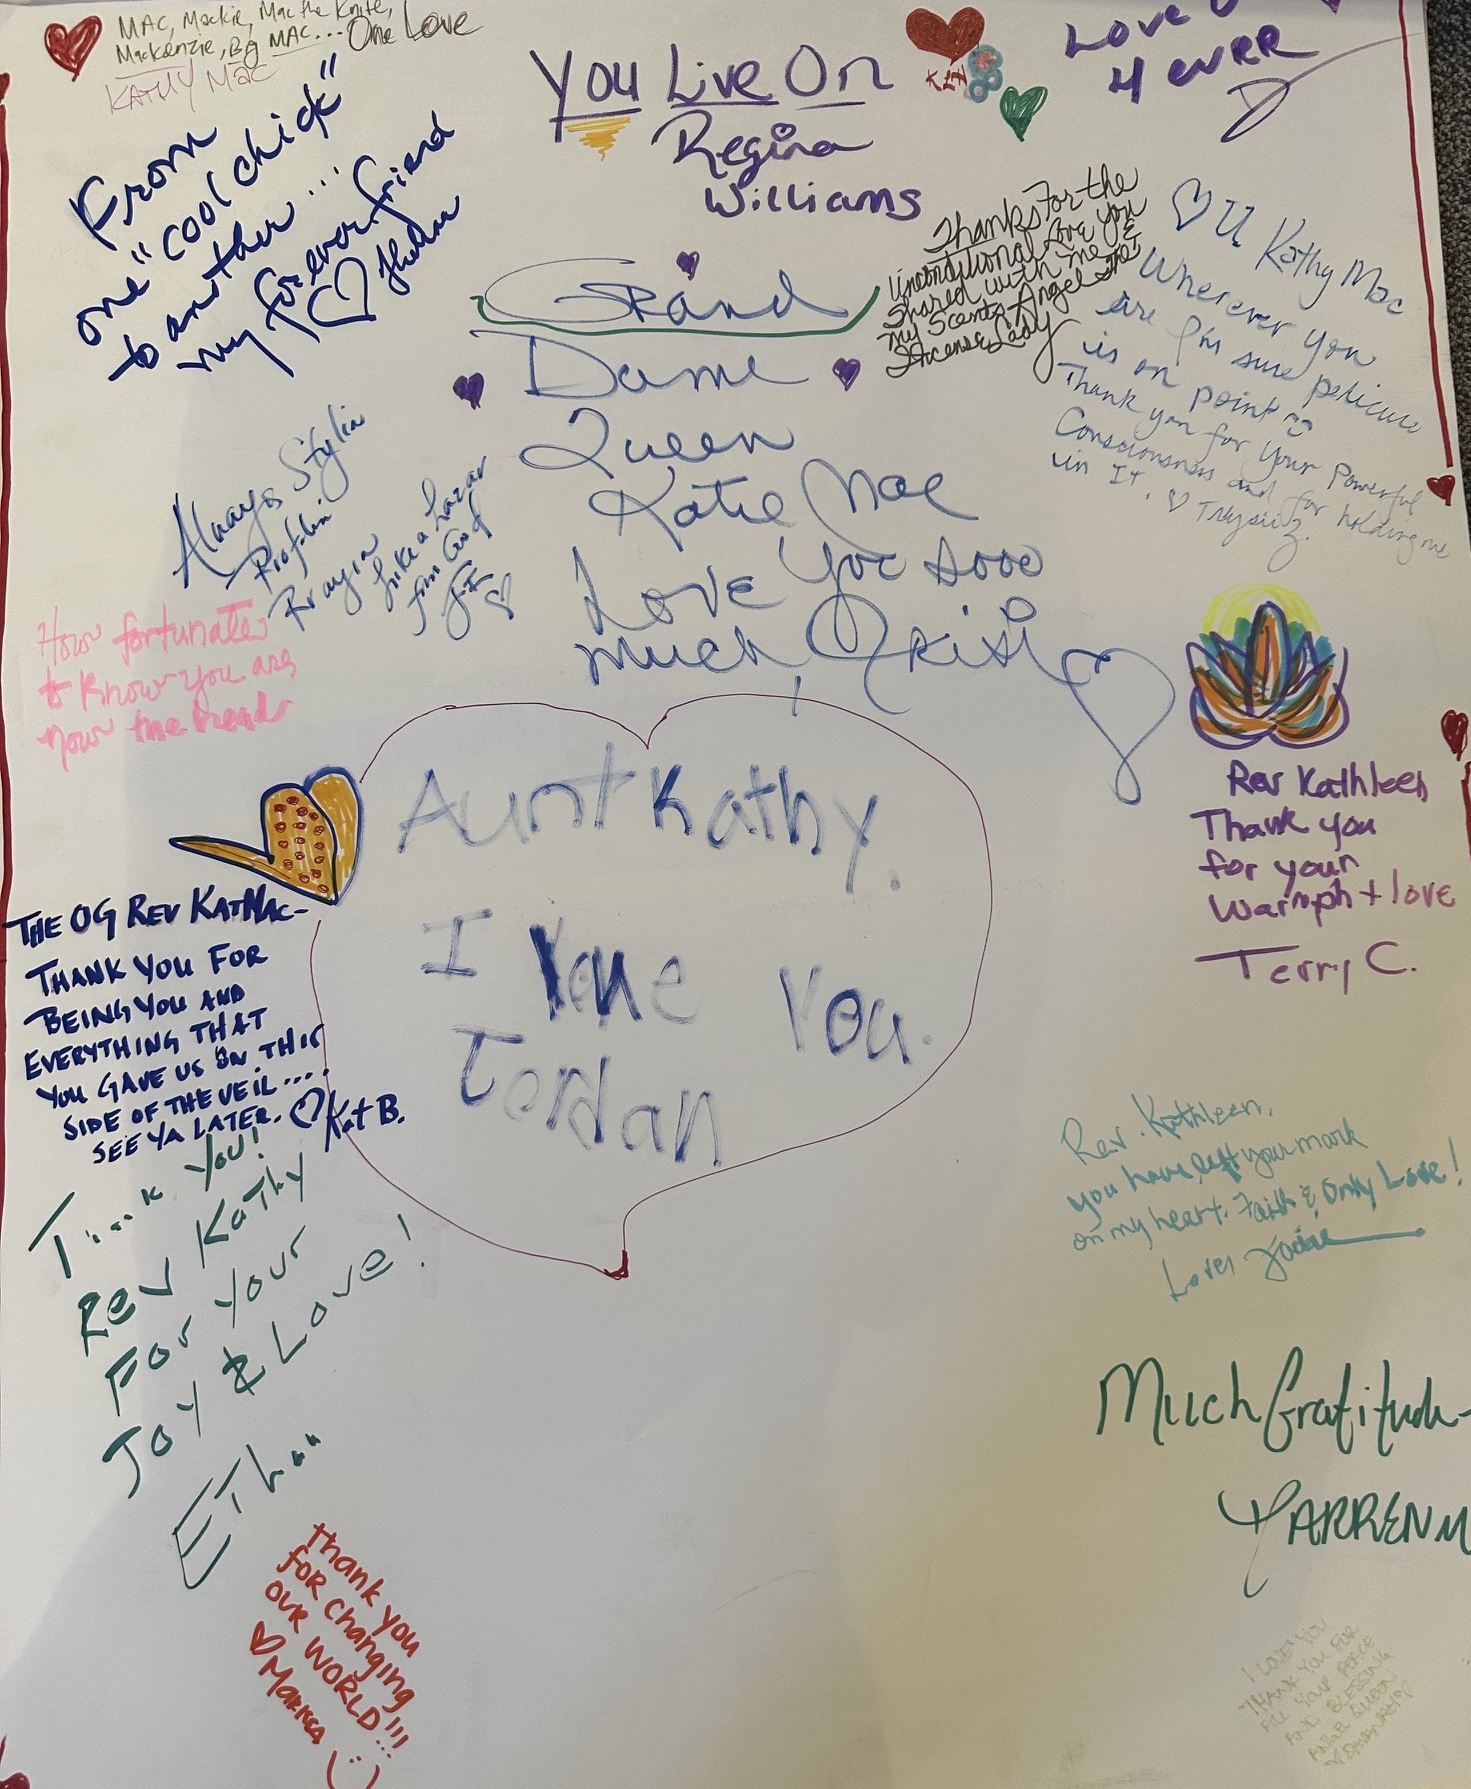 MAC, Mackie, Mac the Knife,
Mackenzie, Big MAC... One Love
KATHY MAC
From
one "cool chick"
to another...
my forever friend
You Live On
Regina
Williams
KLH
Love U
4 ever
Thanks For the
Unconditional Love You
Shared with me &
my Scents Angel
Lady
U Kathy Mac
Wherever you
are I'm sure pedicure
is on point
Thank you for your powerful
Consciousness and for holding me
in It.
Grand
Dame
Queen
Katie Mae
Love You sooo
much
Always Stylin
Profilin
Prayin
Like a Lazar
fun God
How fortunate
to know you are
now the head
Aunt Kathy.
I love you.
Jordan
Rev Kathleen
Thank you
for your
Warmph + love
Terry C.
THE OG REV KATMAC-
THANK YOU FOR
BEING YOU AND
EVERYTHING THAT
YOU GAVE US ON THIS
SIDE OF THE VEIL....
SEE YA LATER. Kat B.
You!
Rev Kathy
For your
Joy & Love!
Ethan
Rev. Kathleen,
you have left your mark
on my heart. Faith & Only Love!
Love,
Much Gratitude-
Thank you
for changing
our WORLD!!!
Marissa
I LOVE YOU
THANK YOU FOR
ALL YOUR PEACE
AND BLESSING
QUEEN